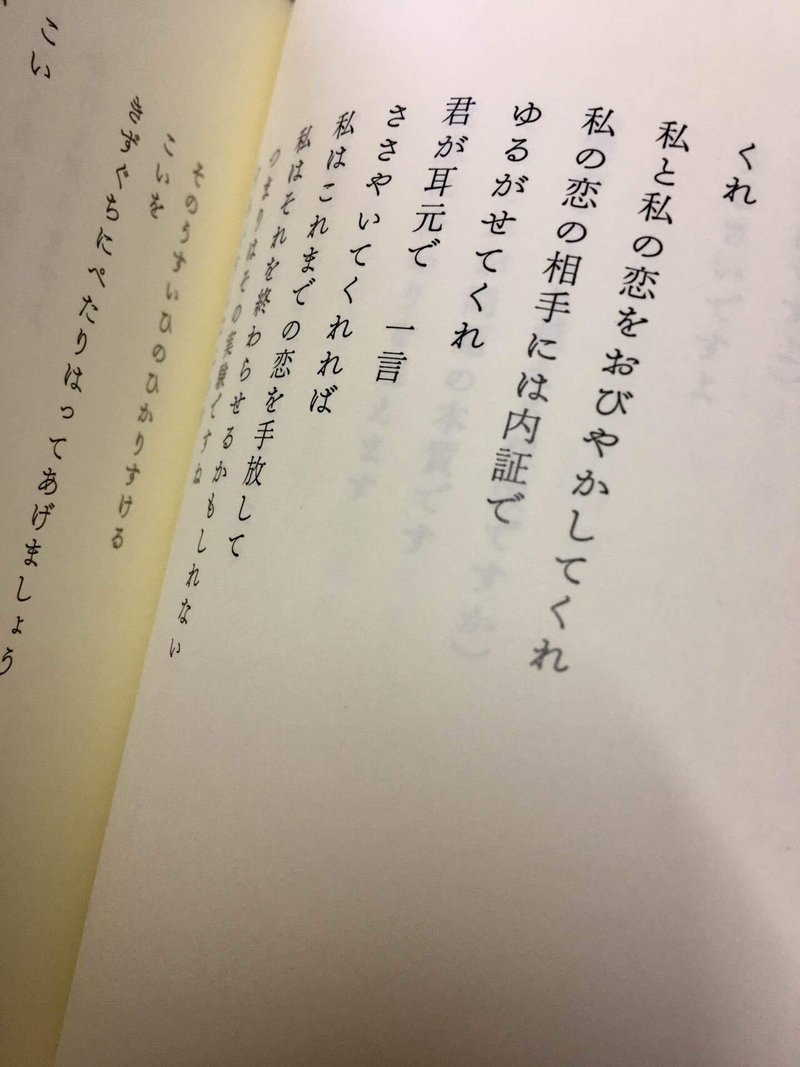 くれ
私と私の恋をおびやかしてくれ
私の恋の相手には内証で
ゆるがせてくれ
君が耳元で　一言
ささやいてくれれば
私はこれまでの恋を手放して
私はそれを終わらせるかもしれない
つまりはその実験ですね
そのうすいひのひかりすける
こいを
きずぐちにぺたりはってあげましょう
こい